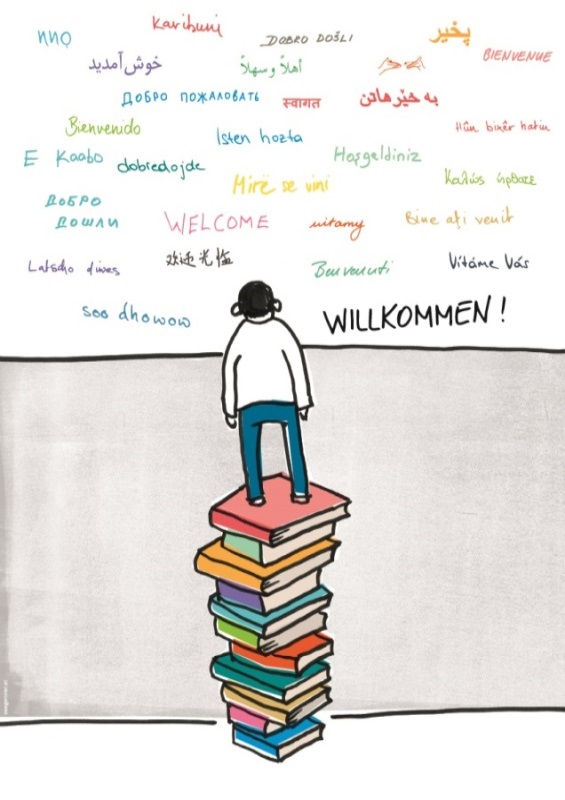 Karibuni
DOBRO DOŠLI
پخیر
BIENVENUE
خوش‌آمدید
أهلاً و سهلاً
ДОБРО ПОЖАЛОВАТЬ
स्वागत
به خێرهاتن
Bienvenido
Isten hozta
Hûn bixêr hatin
E Kaabo
dobredojde
Hoşgeldiniz
Mirë se vini
Καλώς ήρθατε
ДОБРО
ДОШЛИ
WELCOME
witamy
Bine aţi venit
Latscho diwes
欢迎光临
Benvenuti
Vítáme Vás
soo dhowow
WILLKOMMEN!